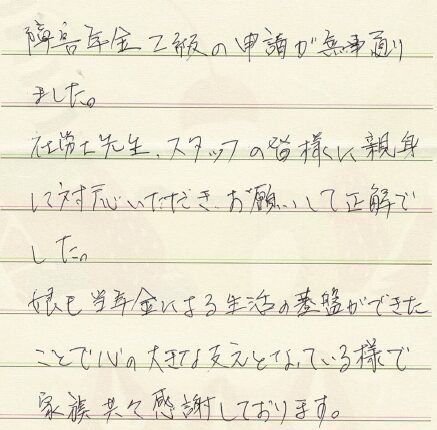 障害年金２級の申請が無事通り
ました。
社労士先生、スタッフの皆様に親身
に対応いただき、お願いして正解で
した。
娘も当年金による生活の基盤ができた
ことで心の大きな支えとなっている様で
家族共々感謝しております。